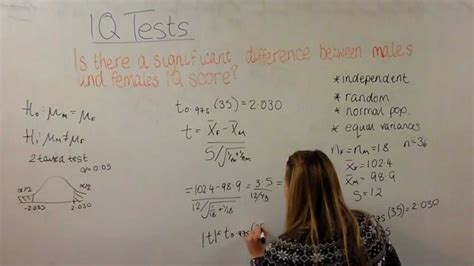 IQ Tests
Is there a significant difference between males
and females IQ score?
H₀: μₘ = μ_F
H₁: μₘ ≠ μ_F
2 tailed test
α = 0.05
α/2 α/2
-2.030 2.030
t₀.₉₇₅ (35) = 2.030
t = X̄_F - X̄_M
S/√1/n + 1/n
= 102.4 - 98.9 = 3.5 =
12/√1/18 + 1/18 12/√3
|t| < t₀.₉₇₅ (35
* independent
* random
* normal pop.
* equal variances
n = 36
n_F = n_M = 18
X̄_F = 102.4
X̄_M = 98.9
S = 12
(35) = 2.030